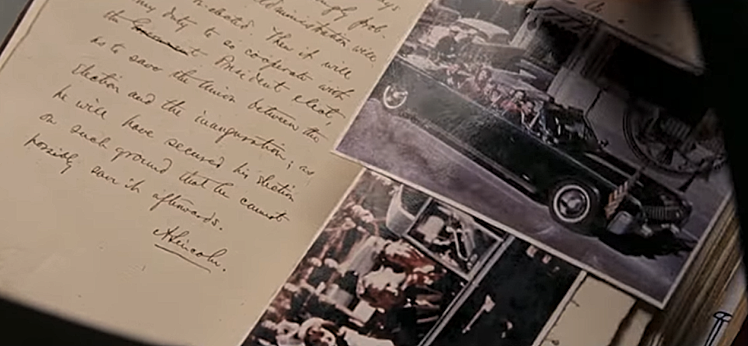 prob-
Administration will
re-elected. Then it will
my duty to so cooperate with
the President elect,
as to save the Union between the
election and the inauguration; as
he will have secured his election
on such ground that he cannot
possibly save it afterwards.
A Lincoln.